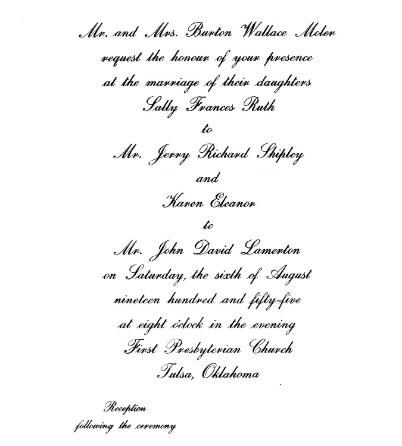 Mr. and Mrs. Burton Wallace Moler
request the honour of your presence
at the marriage of their daughters
Sally Frances Ruth
to
Mr. Jerry Richard Shipley
and
Karen Eleanor
to
Mr. John David Lamerton
on Saturday, the sixth of August
nineteen hundred and fifty-five
at eight o'clock in the evening
First Presbyterian Church
Tulsa, Oklahoma
Reception
following the ceremony